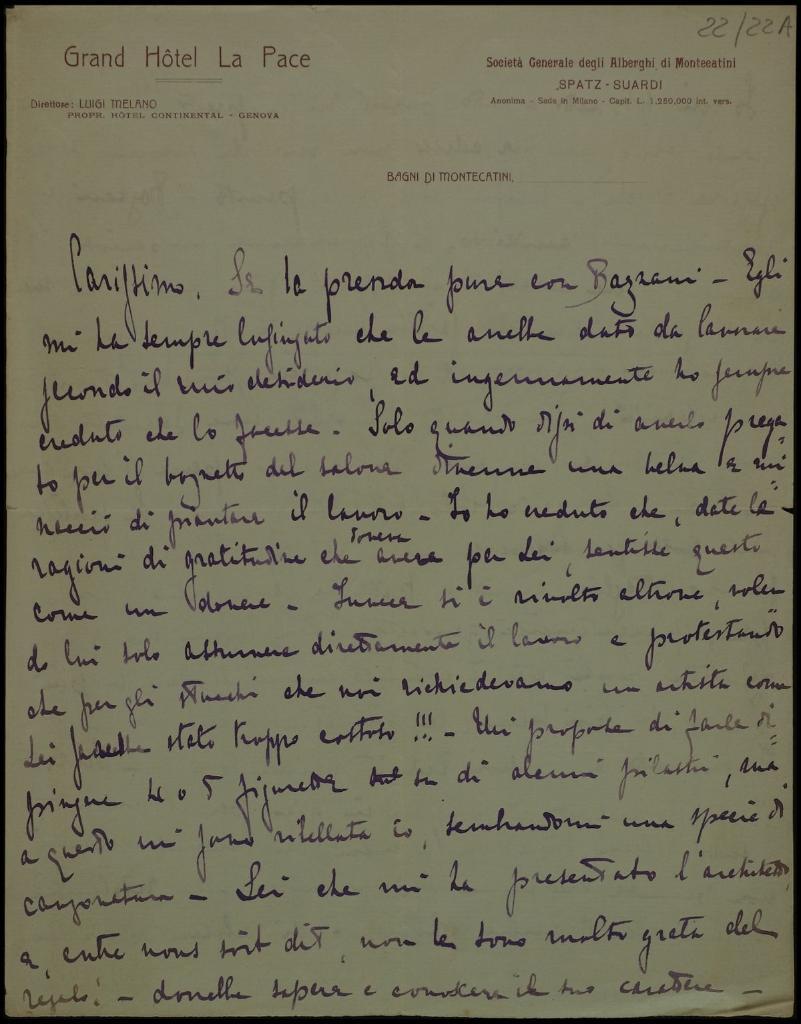 22/22A
Grand Hôtel La Pace
Società Generale degli Alberghi di Montecatini
SPATZ - SUARDI
Anonima - Sede in Milano - Capit. L. 1.250,000 int. vers.
Direttore: LUIGI MELANO
PROPR. HÔTEL CONTINENTAL - GENOVA
BAGNI DI MONTECATINI,
Carissimo. Se la prenda pure con Bazzani - Egli
mi ha sempre lusingato che le avesse dato da lavorare
secondo il mio desiderio, ed ingenuamente ho sempre
creduto che lo facesse - Solo quando dissi di averlo prega
to per il bozzetto del salone divenne una belva e mi=
nacciò di piantare il lavoro - Io ho creduto che, date le
ragioni di gratitudine che doveva avere per Lei, sentisse questo
come un dovere - Invece si è rivolto altrove, volen
do lui solo assumere direttamente il lavoro e protestando
che per gli stucchi che noi richiedevamo un artista come
Lei sarebbe stato troppo costoso!!! - Mi propose di farle di=
pingere 4 o 5 figurette su di alcuni pilastri, ma
a questo mi sono ribellata io, sembrandomi una specie di
canzonatura - Lei che mi ha presentato l'architetto,
e, entre nous soit dit, non le sono molto grata del
regalo! - dovrebbe sapere e conoscere il suo carattere -